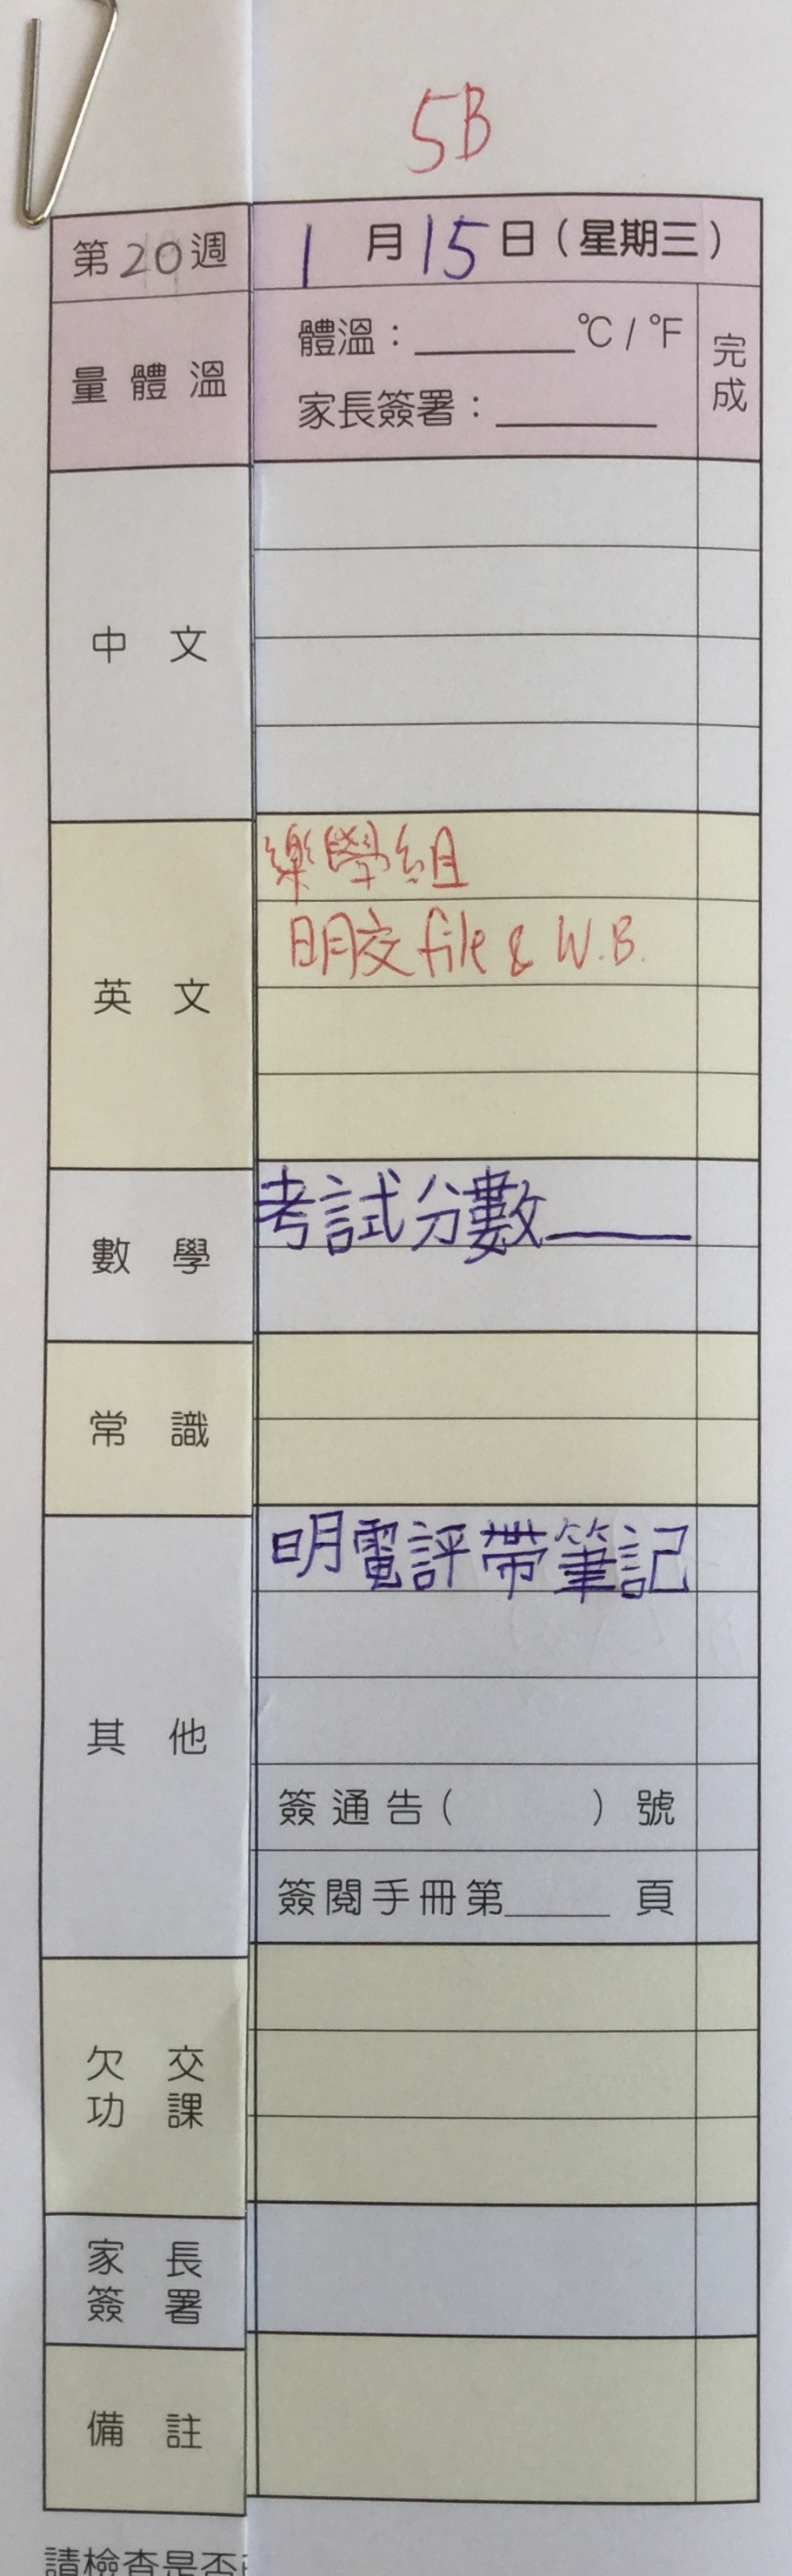 5B
第20週 1月15日(星期三)
量體溫 體溫：______°C / °F 完成
家長簽署：______
中文
英文
樂學組
明交 file & W.B.
數學
考試分數______
常識
其他
明電評帶筆記
簽通告( )號
簽閱手冊第______頁
欠交
功課
家長
簽署
備註
請檢查是否